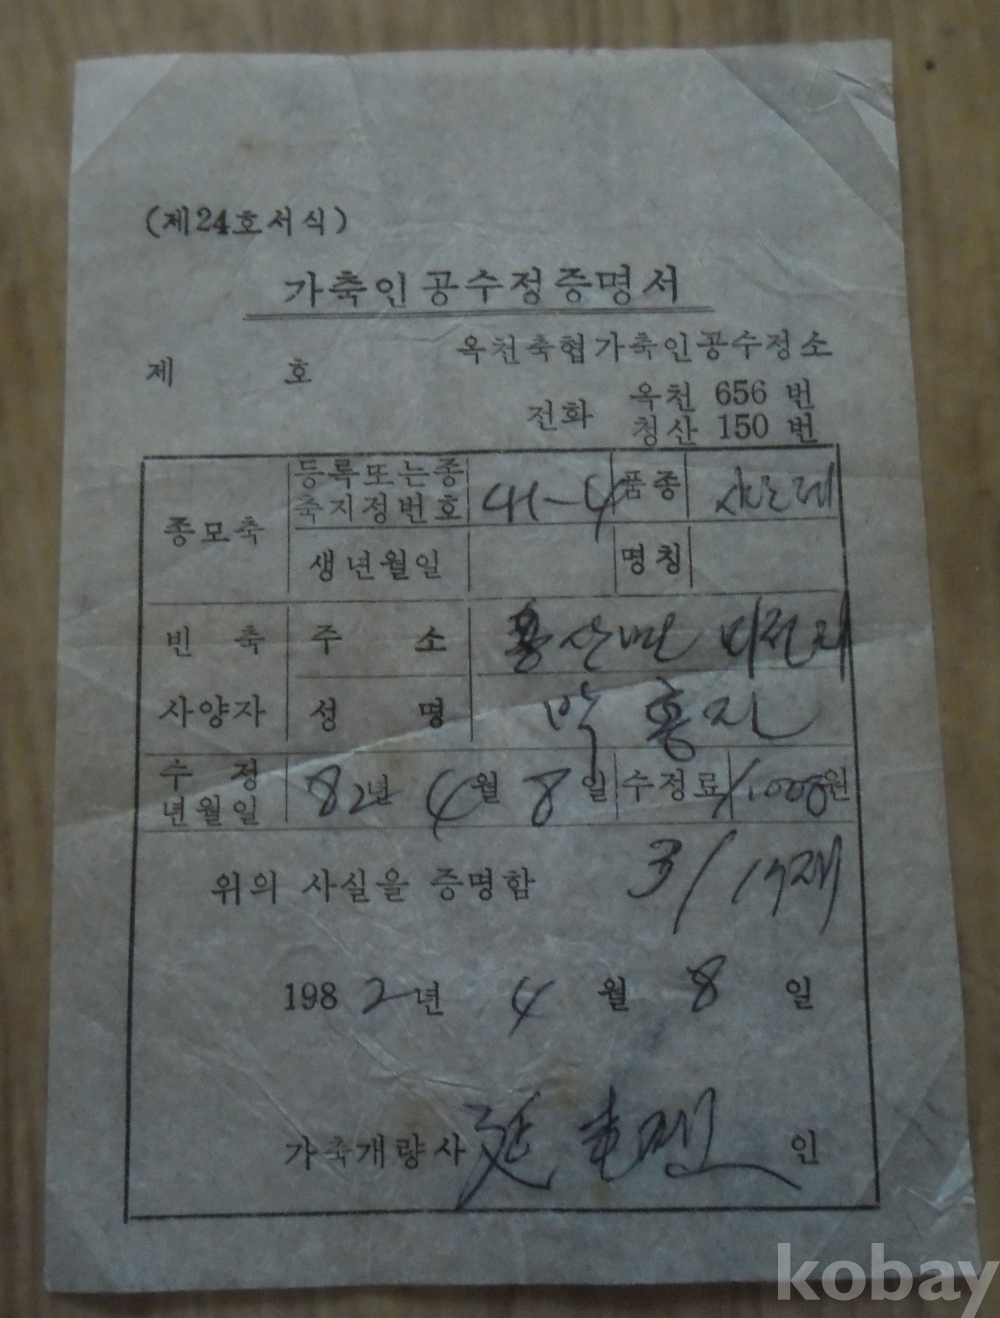 (제24호서식)
가축인공수정증명서
제 호
옥천축협가축인공수정소
전화 옥천 656 번
청산 150 번
종모축 등록또는종축지정번호 41-4 품종 샤로레
생년월일 명칭
빈축 주소 면
사양자 성명 박 홍
수정년월일 82년 4월 8일 수정료 원
위의 사실을 증명함
1982년 4월 8일
가축개량사 인
kobay